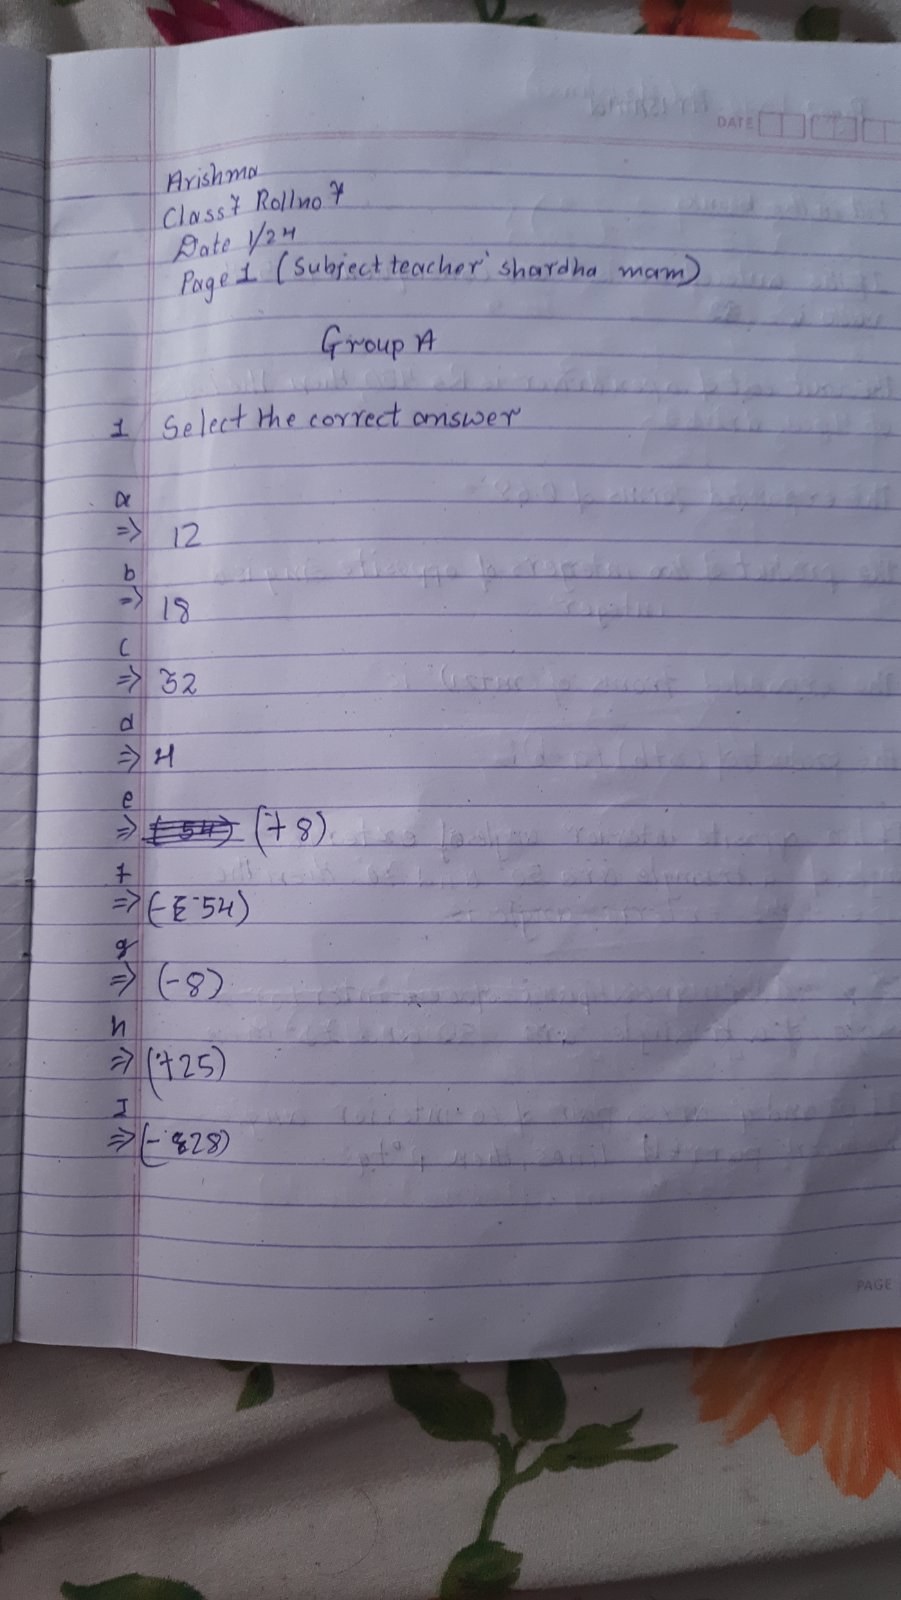 DATE
Arishma
Class 7 Rollno 7
Date 1/24
Page 1 (subject teacher' shardha mam)
Group A
1 Select the correct answer
a
=> 12
b
=> 18
c
=> 32
d
=> 4
e
=> (+8)
f
=> (-54)
g
=> (-8)
h
=> (+25)
I
=> (-28)
PAGE